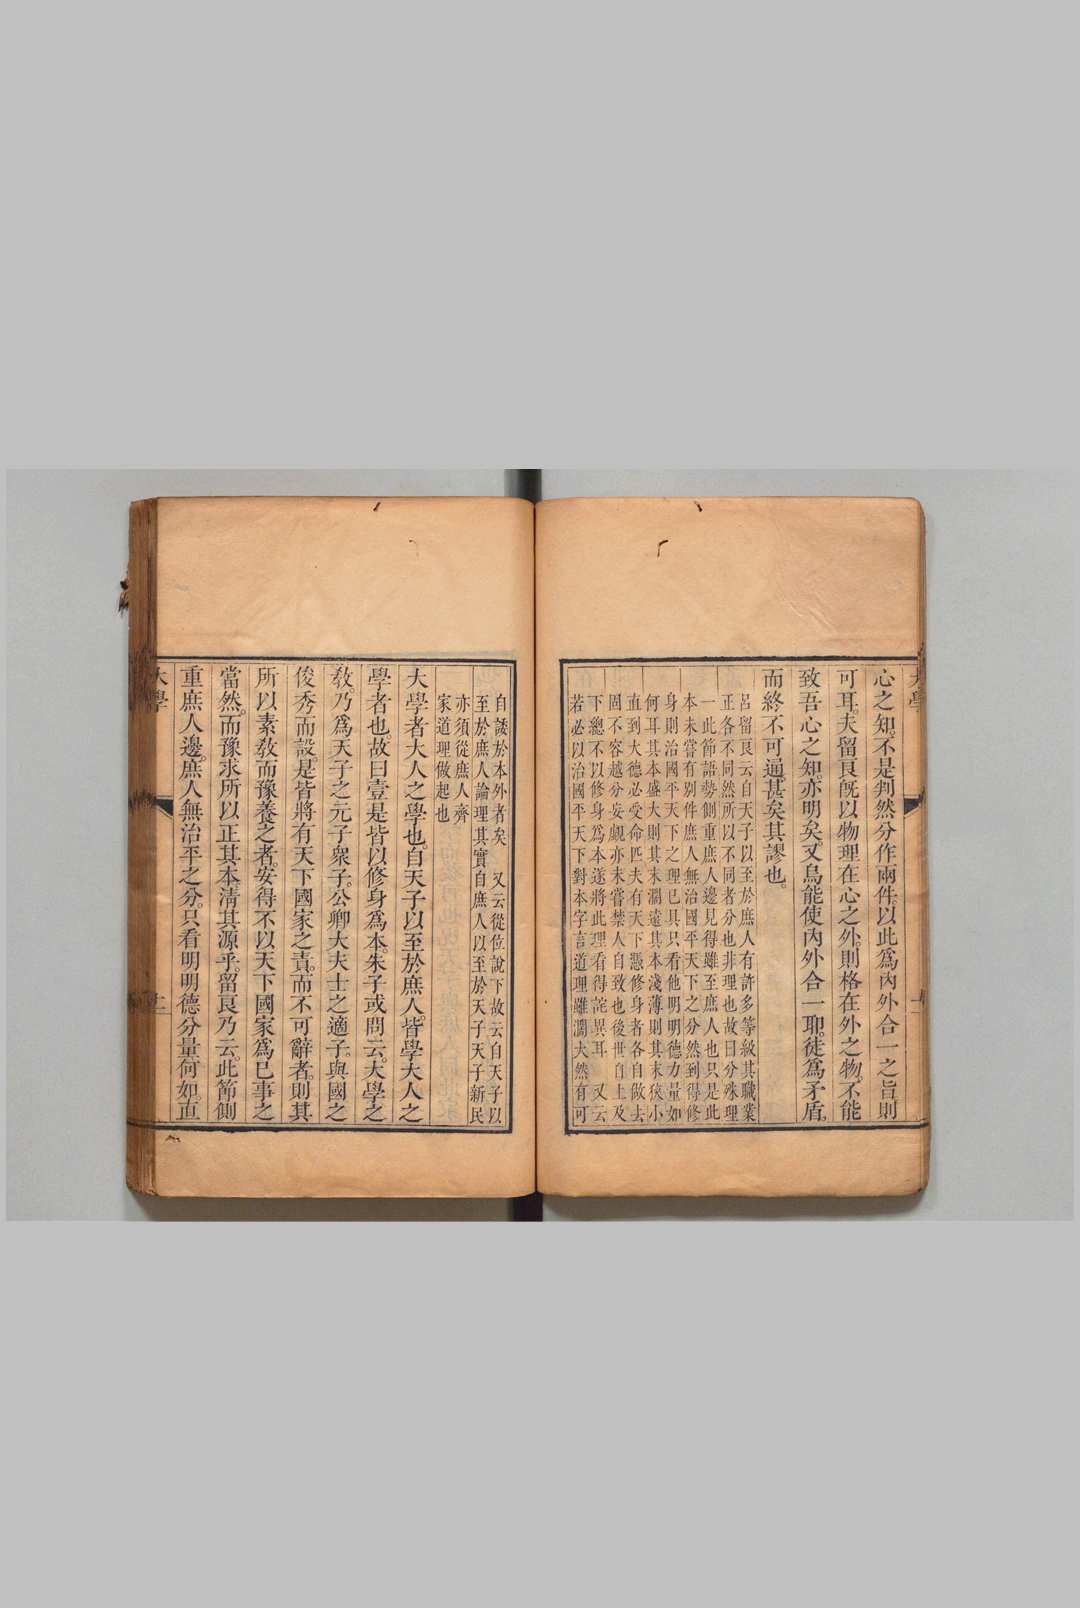 心之知。不是判然分作兩件。以此爲內外合一之旨。則
可耳。夫留良旣以物理在心之外。則格在外之物。不能
致吾心之知。亦明矣。又烏能使內外合一耶。徒爲矛盾。
而終不可通。甚矣其謬也。
呂留良云自天子以至於庶人有許多等級其職業
正各不同然所以不同者分也非理也故曰分殊理
一此節語勢側重庶人邊見得雖至庶人也只是此
本未嘗有別件庶人無治國平天下之分然到得修
身則治國平天下之理已具只看他明明德力量如
何耳其本盛大則其末濶遠其本淺薄則其末狹小
直到大德必受命匹夫有天下憑修身者各自做去
固不容越分妄覷亦未嘗禁人自致也後世自上及
下總不以修身爲本遂將此理看得詫異耳　又云
若必以治國平天下對本字言道理雖濶大然有可
自諉於本外者矣　又云從位說下故云自天子以
至於庶人論理其實自庶人以至於天子天子新民
亦須從庶人齊
家道理做起也
大學者大人之學也。自天子以至於庶人。皆學大人之
學者也。故曰壹是皆以修身爲本。朱子或問云。大學之
敎。乃爲天子之元子衆子。公卿大夫士之適子。與國之
俊秀而設。是皆將有天下國家之責。而不可辭者。則其
所以素敎而豫養之者。安得不以天下國家爲已事之
當然。而豫求所以正其本淸其源乎。留良乃云。此節側
重庶人邊。庶人無治平之分。只看明明德分量何如。直
大學